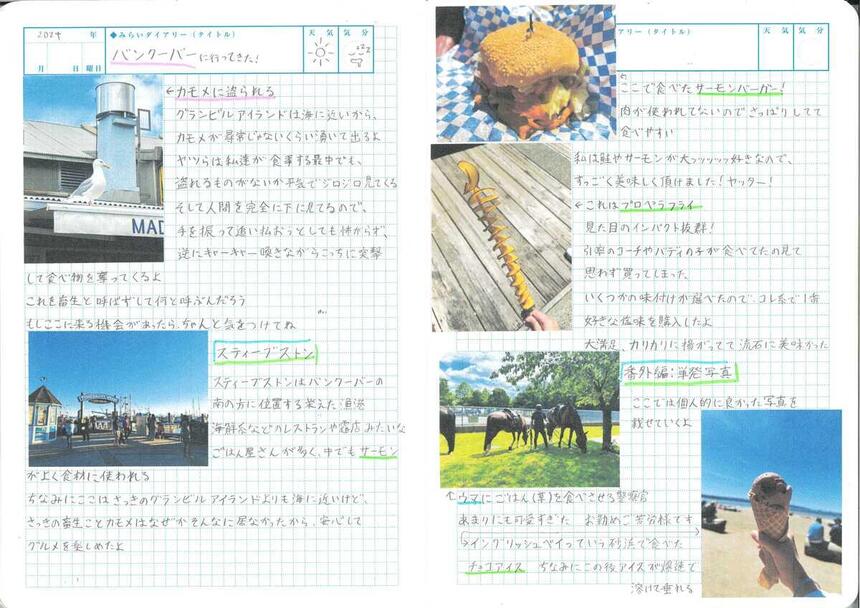 2024 年
月 日 曜日
◆みらいダイアリー(タイトル)
バンクーバーに行ってきた!
天気
気分
zzz
←カモメに盗られる
グランビルアイランドは海に近いから、
カモメが尋常じゃないくらい湧いて出るよ
ヤツらは私達が食事する最中でも、
盗れるものがないか平気でジロジロ見てくる
そして人間を完全に下に見てるので、
手を振って追い払おうとしても怖がらず、
逆にキャーキャー喚きながらこっちに突撃
して食べ物を奪ってくるよ
これを畜生と呼ばずして何と呼ぶんだろう
もしここに来る機会があったら、ちゃんと気をつけてね
MAD
スティーブストン
スティーブストンはバンクーバーの
南の方に位置する栄えた漁港
海鮮系などのレストランや露店みたいな
ごはん屋さんが多く、中でもサーモン
がよく食材に使われる
ちなみにここはさっきのグランビルアイランドよりも海に近いけど、
さっきの畜生ことカモメはなぜかそんなに居なかったから、安心して
グルメを楽しめたよ
アリー(タイトル)
天気
気分
ここで食べたサーモンバーガー!
肉が使われてないのでさっぱりしてて
食べやすい
私は鮭やサーモンが大ッッッッッ好きなので、
すっごく美味しく頂けました!ヤッター!
←これはプロペラフライ
見た目のインパクト抜群!
引率のコーチやバディの子が食べてたの見て
思わず買ってしまった、
いくつかの味付けが選べたので、コレ系で1番
好きな塩味を購入したよ
大満足、カリカリに揚がってて流石に美味かった
番外編:単発写真
ここでは個人的に良かった写真を
載せていくよ
↑ウマにごはん(草)を食べさせる警察官
あまりにも可愛すぎた お勤めご苦労様です
↳イングリッシュベイっていう砂浜で食べた
チョコアイス ちなみにこの後アイスが爆速で
溶けて垂れる